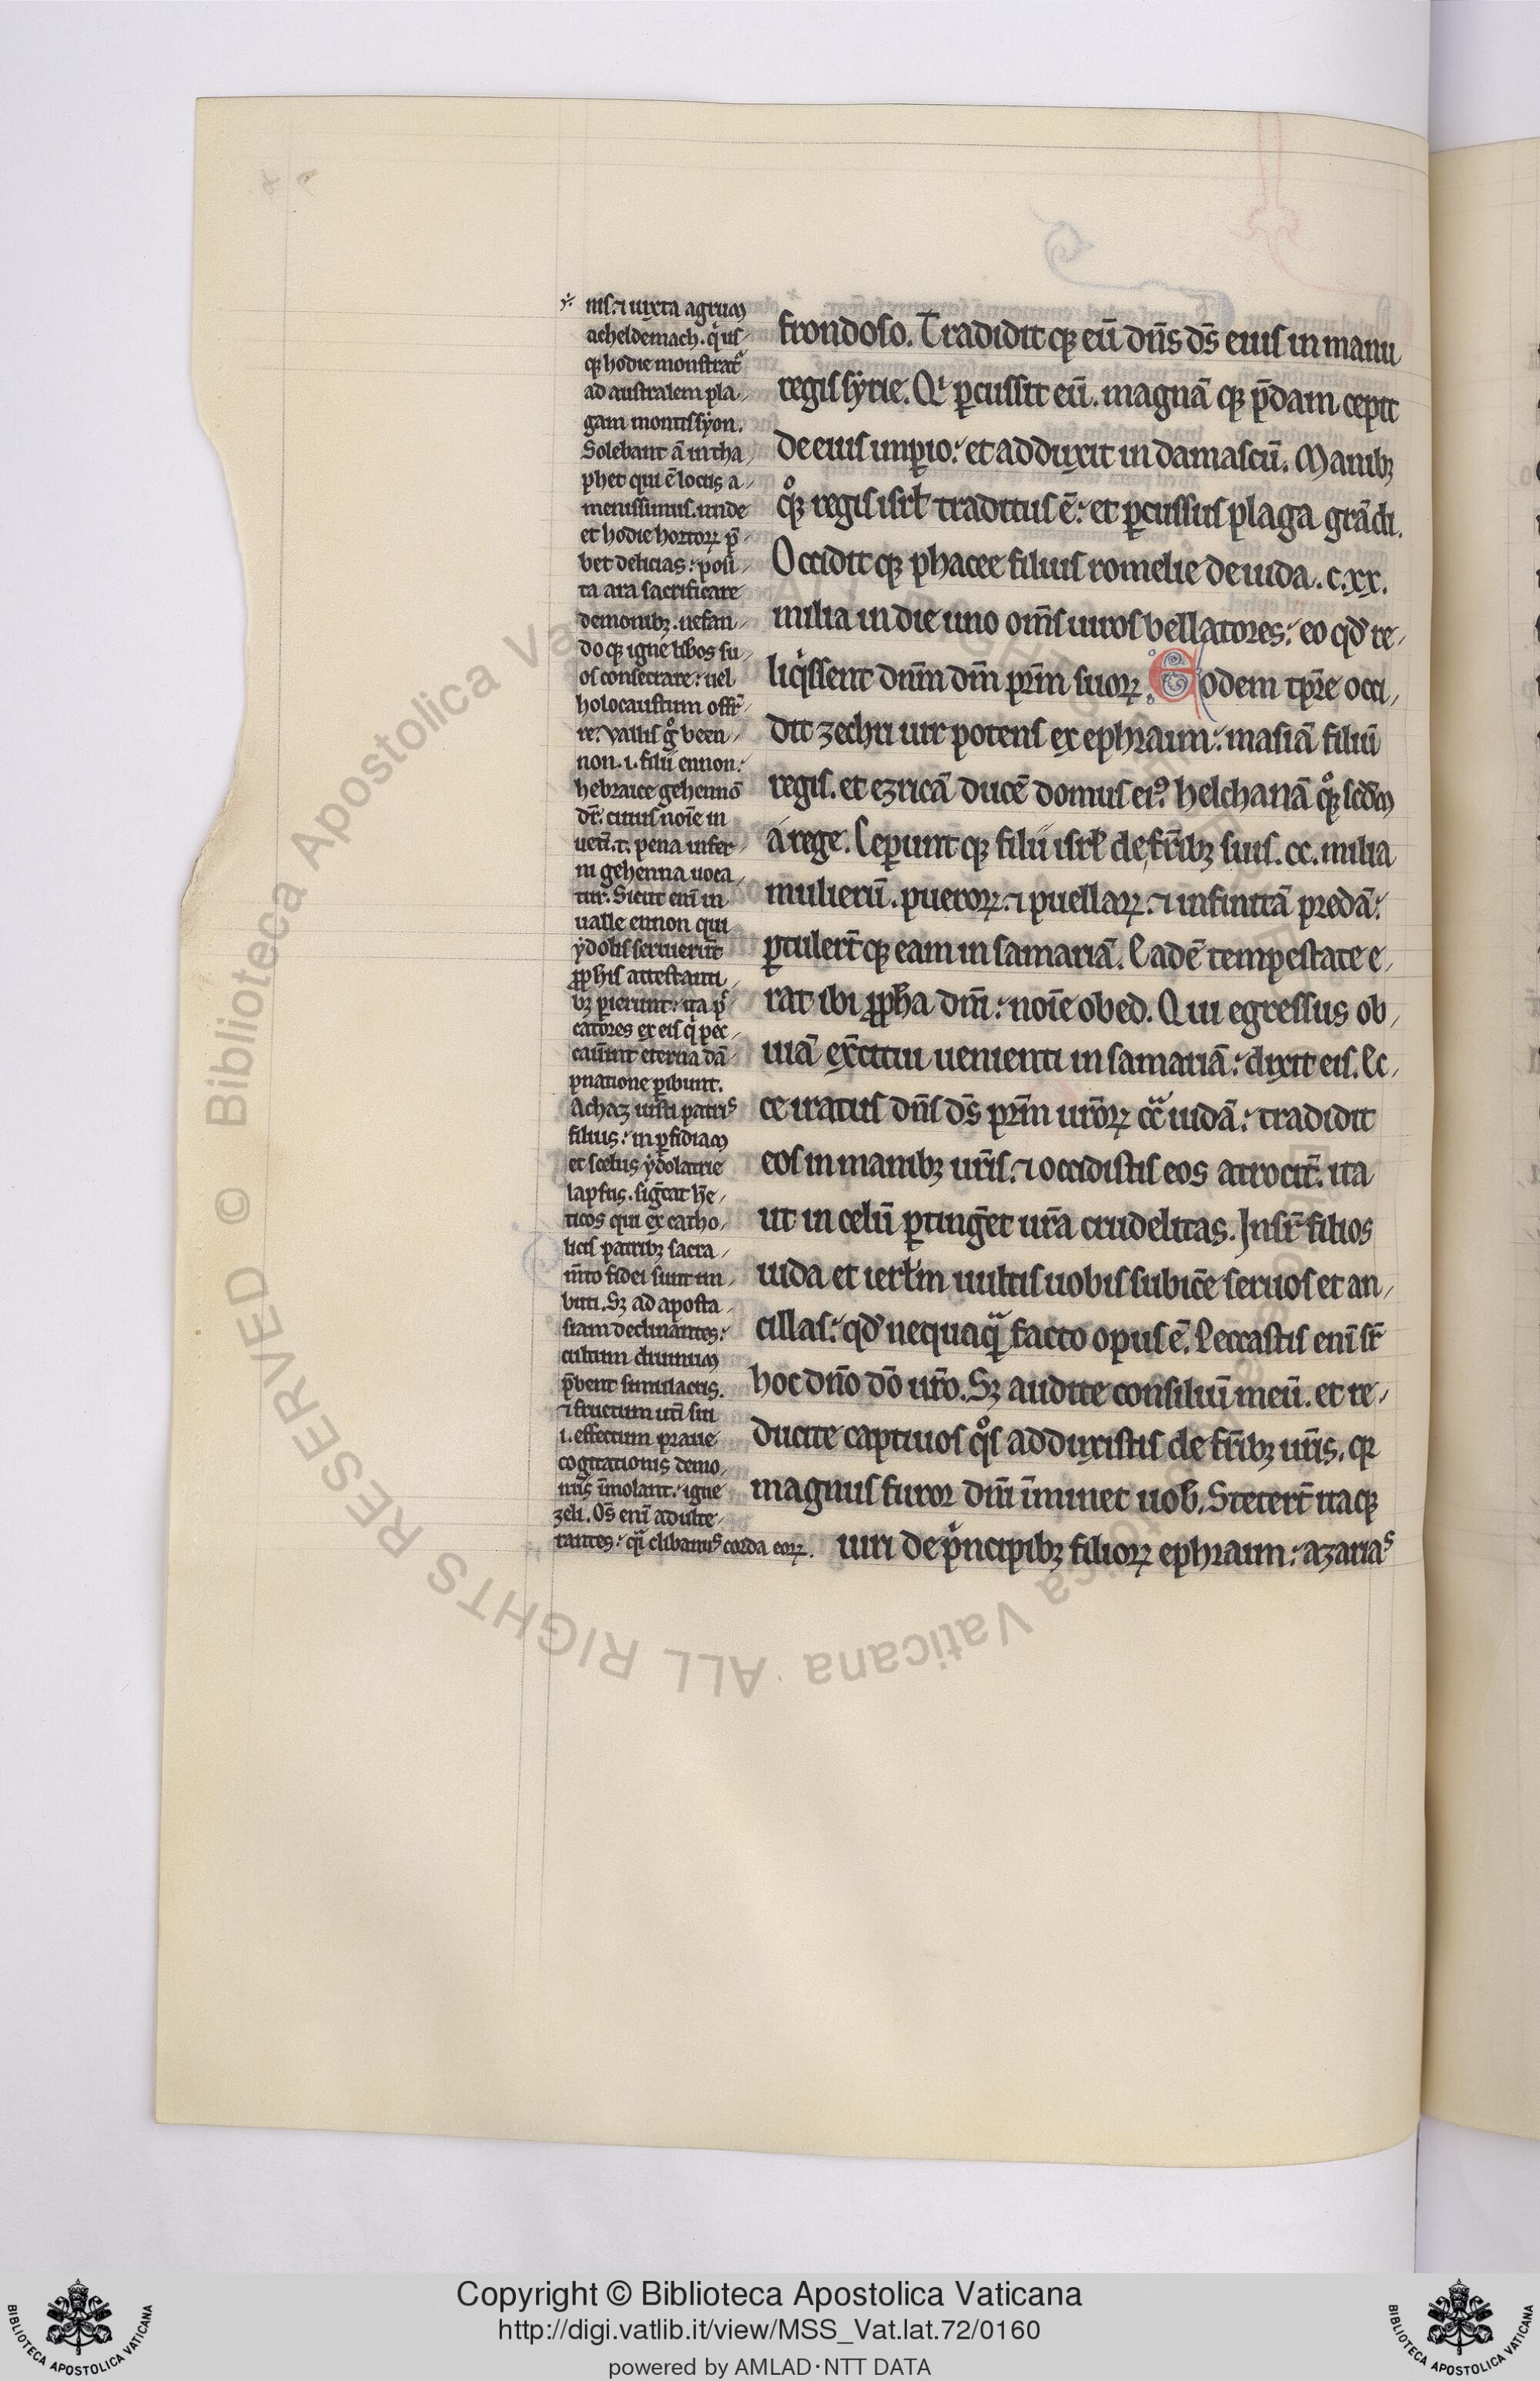 nis. ⁊ iuxta agrum
acheldemach. qͥ us
q₃ hodie monstrat᷑
ad australem pla
gam montis syon.
Solebant ā in tha
phet qui ē locus a
menissimus. unde
et hodie hortoꝝ p̄
bet delicias: posi
ta ara sacrificare
demonib₃. nefan
do q₃ igne lib̄os su
os consecrare: uel
holocaustum offr̄
re. Vallis gͦ been
non .i. filii ennon:
hebraice gehennō
dr̄. cuius noīe in
pena infer
ni gehenna uoca
tur. Sicut enī in
ualle ennon qui
ydolis seruierūt
ꝓphis attestanti
b₃ ꝑierunt: ita p
catores ex eis q̇ pec
cauīnt eterna dā
pnatione ꝑibunt.
Achaz iusti patris
filius: in ꝑfidiam
et scelus ydolatrie
lapsus. sigcat he
ticos qui ex catho
licis patrib₃ sacra
m̄to fidei sunt im
buti. S₃ ad aposta
siam declinantes:
cultum diuinum
p̄bent simulacris.
⁊ fructum utī sui
.i. effectum praue
cogitationis demo
niis īmolant: igne
zeli. Om̄s enī adulte
rantes: qͣ clibanus corda eoꝝ.
frondoso. Tradidit q₃ eū dn̄s ds̄ eius in manu
regis syrie. Qͥ ꝑcussit eū. magnā q₃ p̄dam cepit
de eius imꝑio: et adduxit in damascū. Manib₃
qͦ₃ regis isrl̄ traditus ē: et ꝑcussus plaga grādi.
Occidit q₃ phacee filius romelie de iuda .c.xx.
milia in die uno om̄s uiros bellatores: eo qd̓ re
liq̇ssent dn̄m dm̄ prm̄ suoꝝ. Eodem tꝑre occi
dit zechri uir potens ex ephraim: masiā filiū
regis. et ezricā ducē domus eiꝰ. helchanā qͦ₃ scdm̄
a rege. Ceꝑunt q₃ filii isrl̄ de fr̄ib₃ suis .cc. milia
mulierū. pueroꝝ. ⁊ puellaꝝ. ⁊ infinitā predā:
ꝑtuler̄t q₃ eam in samariā. Eadē tempestate e
rat ibi ꝓph̄a dn̄i: noīe obed. Qui egressus ob
uiā ex̄citui uenienti in samariā: dixit eis. Ec
ce iratus dn̄s ds̄ prm̄ urōꝝ cͣ iudā: tradidit
eos in manib₃ ur̄is. ⁊ occidistis eos atrocit᷑. ita
ut in celū ꝑting̓et ur̄a crudelitas. Insuꝑ filios
iuda et ierl̄m uultis uobis subic̄e seruos et an
cillas: qd̓ nequaqͣ facto opus ē. Peccastis enī sr̄
hoc dn̄o dō ur̄o. S₃ audite consiliū meū. et re
ducite captiuos qͦs adduxistis de fr̄ib₃ ur̄is. q₃
magnus furor dn̄i īminet uob̄. Steter̄t itaq₃
uiri de pͥncipib₃ filioꝝ ephraim: azarias
Copyright © Biblioteca Apostolica Vaticana
http://digi.vatlib.it/view/MSS_Vat.lat.72/0160
powered by AMLAD·NTT DATA